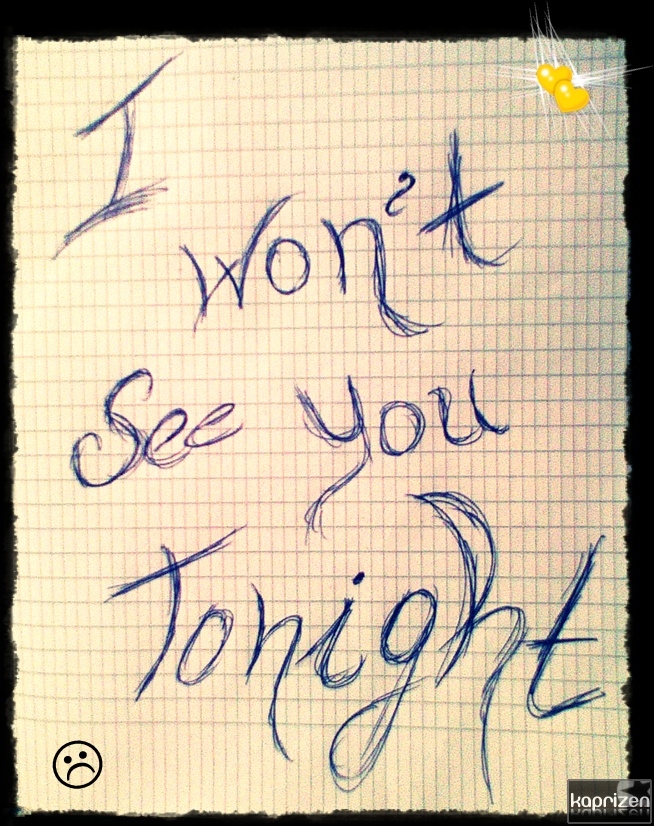 I
won't
See you
Tonight
kaprizen